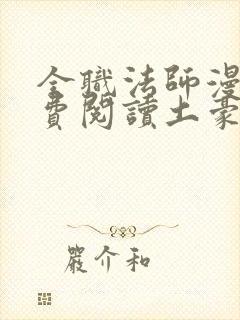 全職法師漫
費閱讀土豪
嚴介和